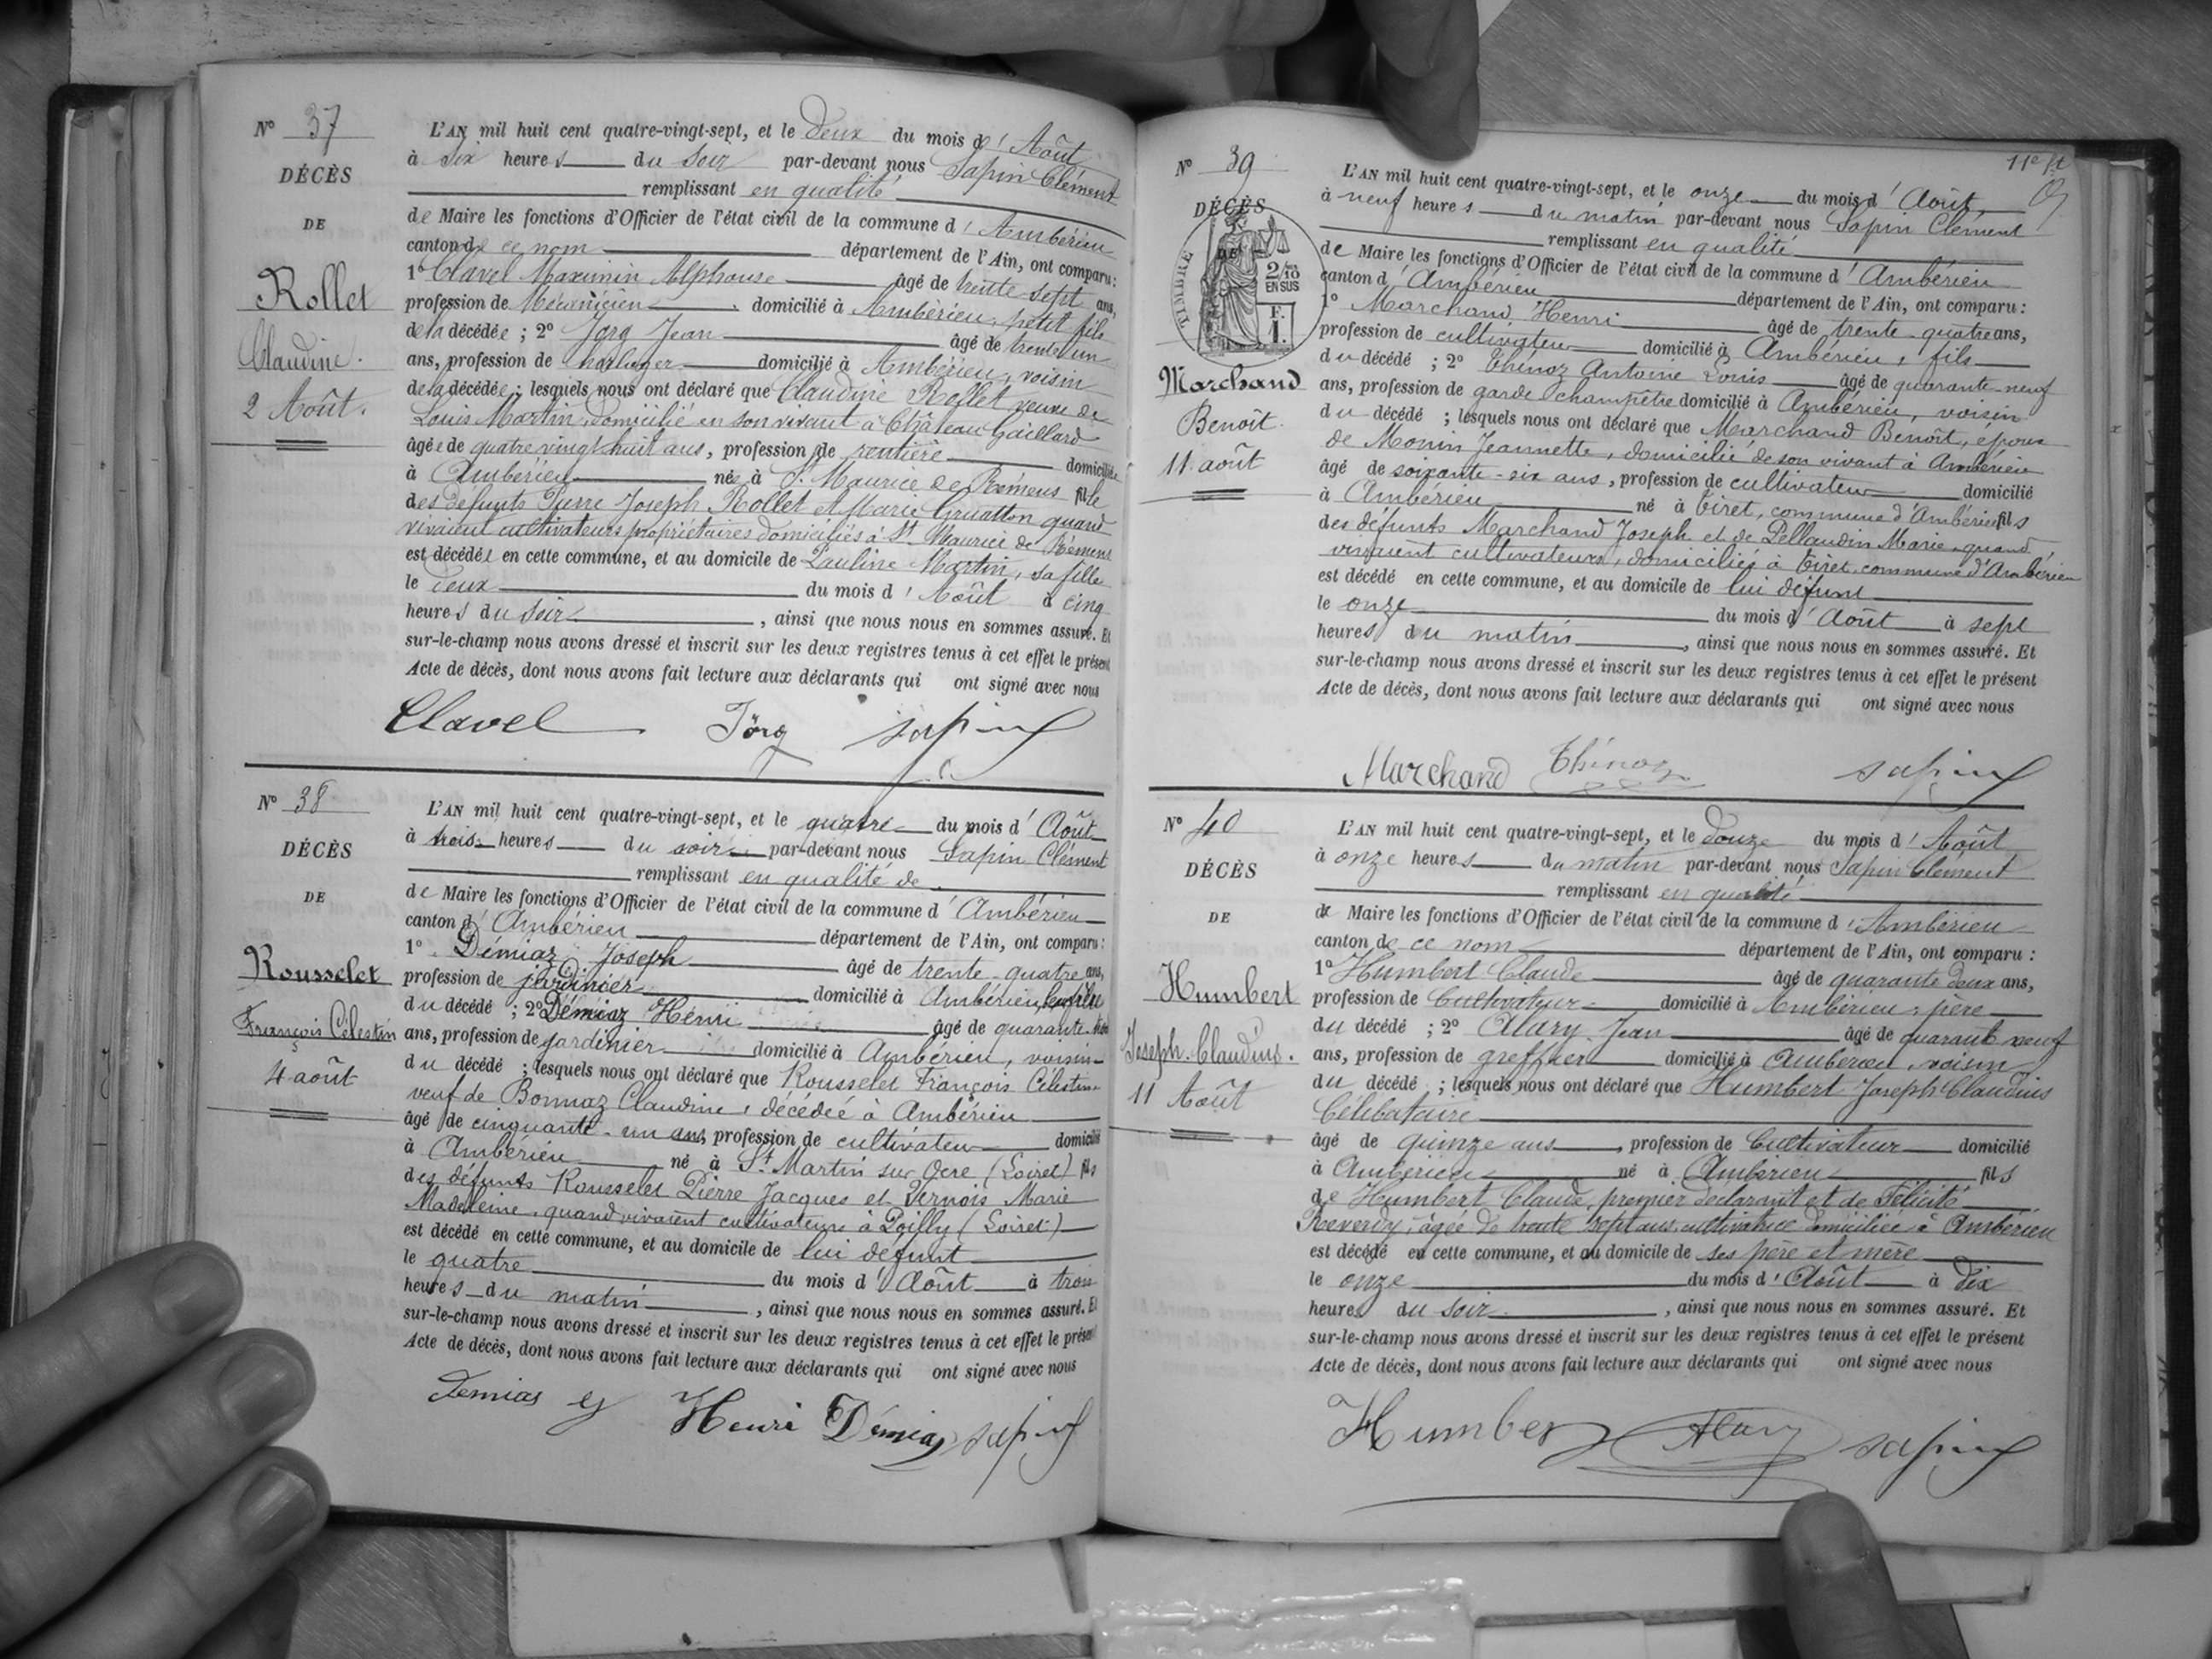 N° 37
DÉCÈS
DE
Rollet
Claudine.
2 Août.
L'AN mil huit cent quatre-vingt-sept, et le deux du mois d'Août
à six heures du soir par-devant nous Sapin Clément
remplissant en qualité
de Maire les fonctions d'Officier de l'état civil de la commune d'Ambérieu
canton de ce nom département de l'Ain, ont comparu :
1° Clavel Maximin Alphonse âgé de trente sept ans,
profession de Mécanicien domicilié à Ambérieu, petit fils
de la décédée ; 2° Jorg Jean âgé de trente un
ans, profession de horloger domicilié à Ambérieu, voisin
de la décédée ; lesquels nous ont déclaré que Claudine Rollet veuve de
Louis Martin, domicilié en son vivant à Château Gaillard
âgée de quatre vingt huit ans, profession de rentière domiciliée
à Ambérieu née à St. Maurice de Rémens fille
des défunts Pierre Joseph Rollet et Marie Gruatton quand
vivaient cultivateurs propriétaires domiciliés à St. Maurice de Rémens
est décédée en cette commune, et au domicile de Pauline Martin, sa fille
le deux du mois d'Août à cinq
heures du soir, ainsi que nous nous en sommes assuré. Et
sur-le-champ nous avons dressé et inscrit sur les deux registres tenus à cet effet le présent
Acte de décès, dont nous avons fait lecture aux déclarants qui ont signé avec nous
Clavel Jörg Sapin
N° 38
DÉCÈS
DE
Rousselet
François Célestin
4 août
L'AN mil huit cent quatre-vingt-sept, et le quatre du mois d'Août
à trois heures du soir par-devant nous Sapin Clément
remplissant en qualité de
de Maire les fonctions d'Officier de l'état civil de la commune d'Ambérieu
canton d'Ambérieu département de l'Ain, ont comparu :
1° Démiaz Joseph âgé de trente-quatre ans,
profession de jardinier domicilié à Ambérieu,
du décédé ; 2° Démiaz Henri âgé de quarante
ans, profession de jardinier domicilié à Ambérieu, voisin
du décédé ; lesquels nous ont déclaré que Rousselet François Célestin
veuf de Bonnaz Claudine, décédée à Ambérieu
âgé de cinquante-un ans, profession de cultivateur domicilié
à Ambérieu né à St. Martin sur Ocre (Loiret) fils
des défunts Rousselet Pierre Jacques et Vernois Marie
Madeleine, quand vivaient cultivateurs à Poilly (Loiret)
est décédé en cette commune, et au domicile de lui défunt
le quatre du mois d'Août à trois
heures du matin, ainsi que nous nous en sommes assuré. Et
sur-le-champ nous avons dressé et inscrit sur les deux registres tenus à cet effet le présent
Acte de décès, dont nous avons fait lecture aux déclarants qui ont signé avec nous
Demias Henri Démiaz Sapin
11e
N° 39
DÉCÈS
DE
TIMBRE
2/10
EN SUS
F.
1.
Marchand
Benoît.
11 août
L'AN mil huit cent quatre-vingt-sept, et le onze du mois d'Août
à neuf heures du matin par-devant nous Sapin Clément
remplissant en qualité
de Maire les fonctions d'Officier de l'état civil de la commune d'Ambérieu
canton d'Ambérieu département de l'Ain, ont comparu :
1° Marchand Henri âgé de trente-quatre ans,
profession de cultivateur domicilié à Ambérieu, fils
du décédé ; 2° Thénoz Antoine Louis âgé de quarante-neuf
ans, profession de garde champêtre domicilié à Ambérieu, voisin
du décédé ; lesquels nous ont déclaré que Marchand Benoît, époux
de Monin Jeannette, domicilié de son vivant à Ambérieu
âgé de soixante-six ans, profession de cultivateur domicilié
à Ambérieu né à Tiret, commune d'Ambérieu fils
des défunts Marchand Joseph et de Pellaudin Marie quand
vivaient cultivateurs, domiciliés à Tiret, commune d'Ambérieu
est décédé en cette commune, et au domicile de lui défunt
le onze du mois d'Août à sept
heures du matin, ainsi que nous nous en sommes assuré. Et
sur-le-champ nous avons dressé et inscrit sur les deux registres tenus à cet effet le présent
Acte de décès, dont nous avons fait lecture aux déclarants qui ont signé avec nous
Marchand Thénoz Sapin
N° 40
DÉCÈS
DE
Humbert
Joseph. Claudius.
11 Août
L'AN mil huit cent quatre-vingt-sept, et le douze du mois d'Août
à onze heures du matin par-devant nous Sapin Clément
remplissant en qualité
de Maire les fonctions d'Officier de l'état civil de la commune d'Ambérieu
canton de ce nom département de l'Ain, ont comparu :
1° Humbert Claude âgé de quarante deux ans,
profession de Cultivateur domicilié à Ambérieu, père
du décédé ; 2° Alary Jean âgé de quarante neuf
ans, profession de greffier domicilié à Ambérieu, voisin
du décédé ; lesquels nous ont déclaré que Humbert Joseph Claudius
Célibataire
âgé de quinze ans, profession de Cultivateur domicilié
à Ambérieu né à Ambérieu fils
de Humbert Claude, premier déclarant et de Félicité
Reverdy, âgée de trente sept ans, cultivatrice domiciliée à Ambérieu
est décédé en cette commune, et au domicile de ses père et mère
le onze du mois d'Août à dix
heures du soir, ainsi que nous nous en sommes assuré. Et
sur-le-champ nous avons dressé et inscrit sur les deux registres tenus à cet effet le présent
Acte de décès, dont nous avons fait lecture aux déclarants qui ont signé avec nous
Humbert Alary Sapin